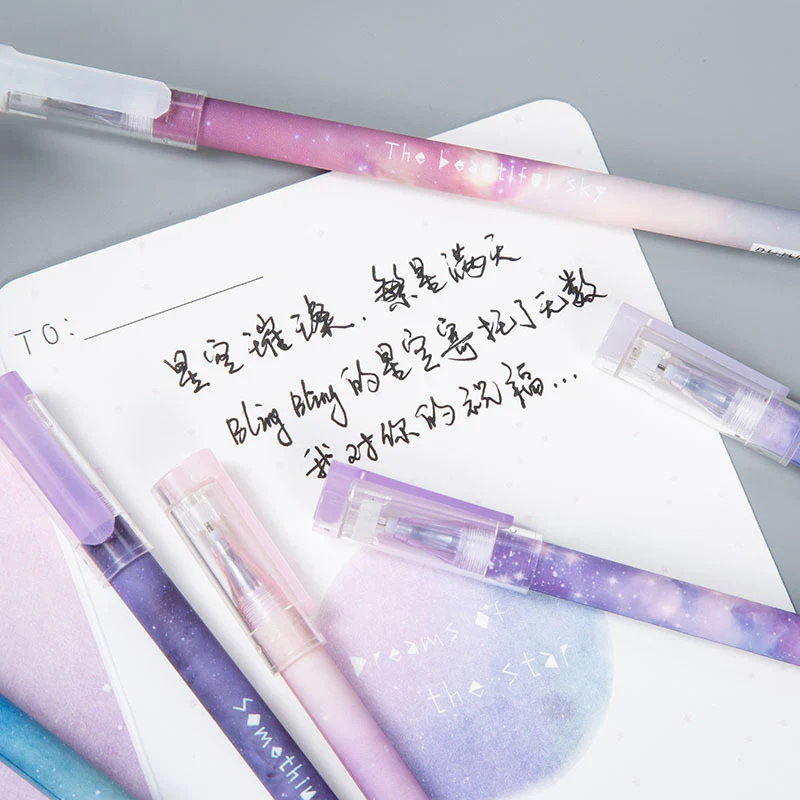 The beautiful sky
TO:
星空璀璨.繁星满天
Bling Bling的星空寄托了无数
我对你的祝福...
Dreams of
the star
Somethin